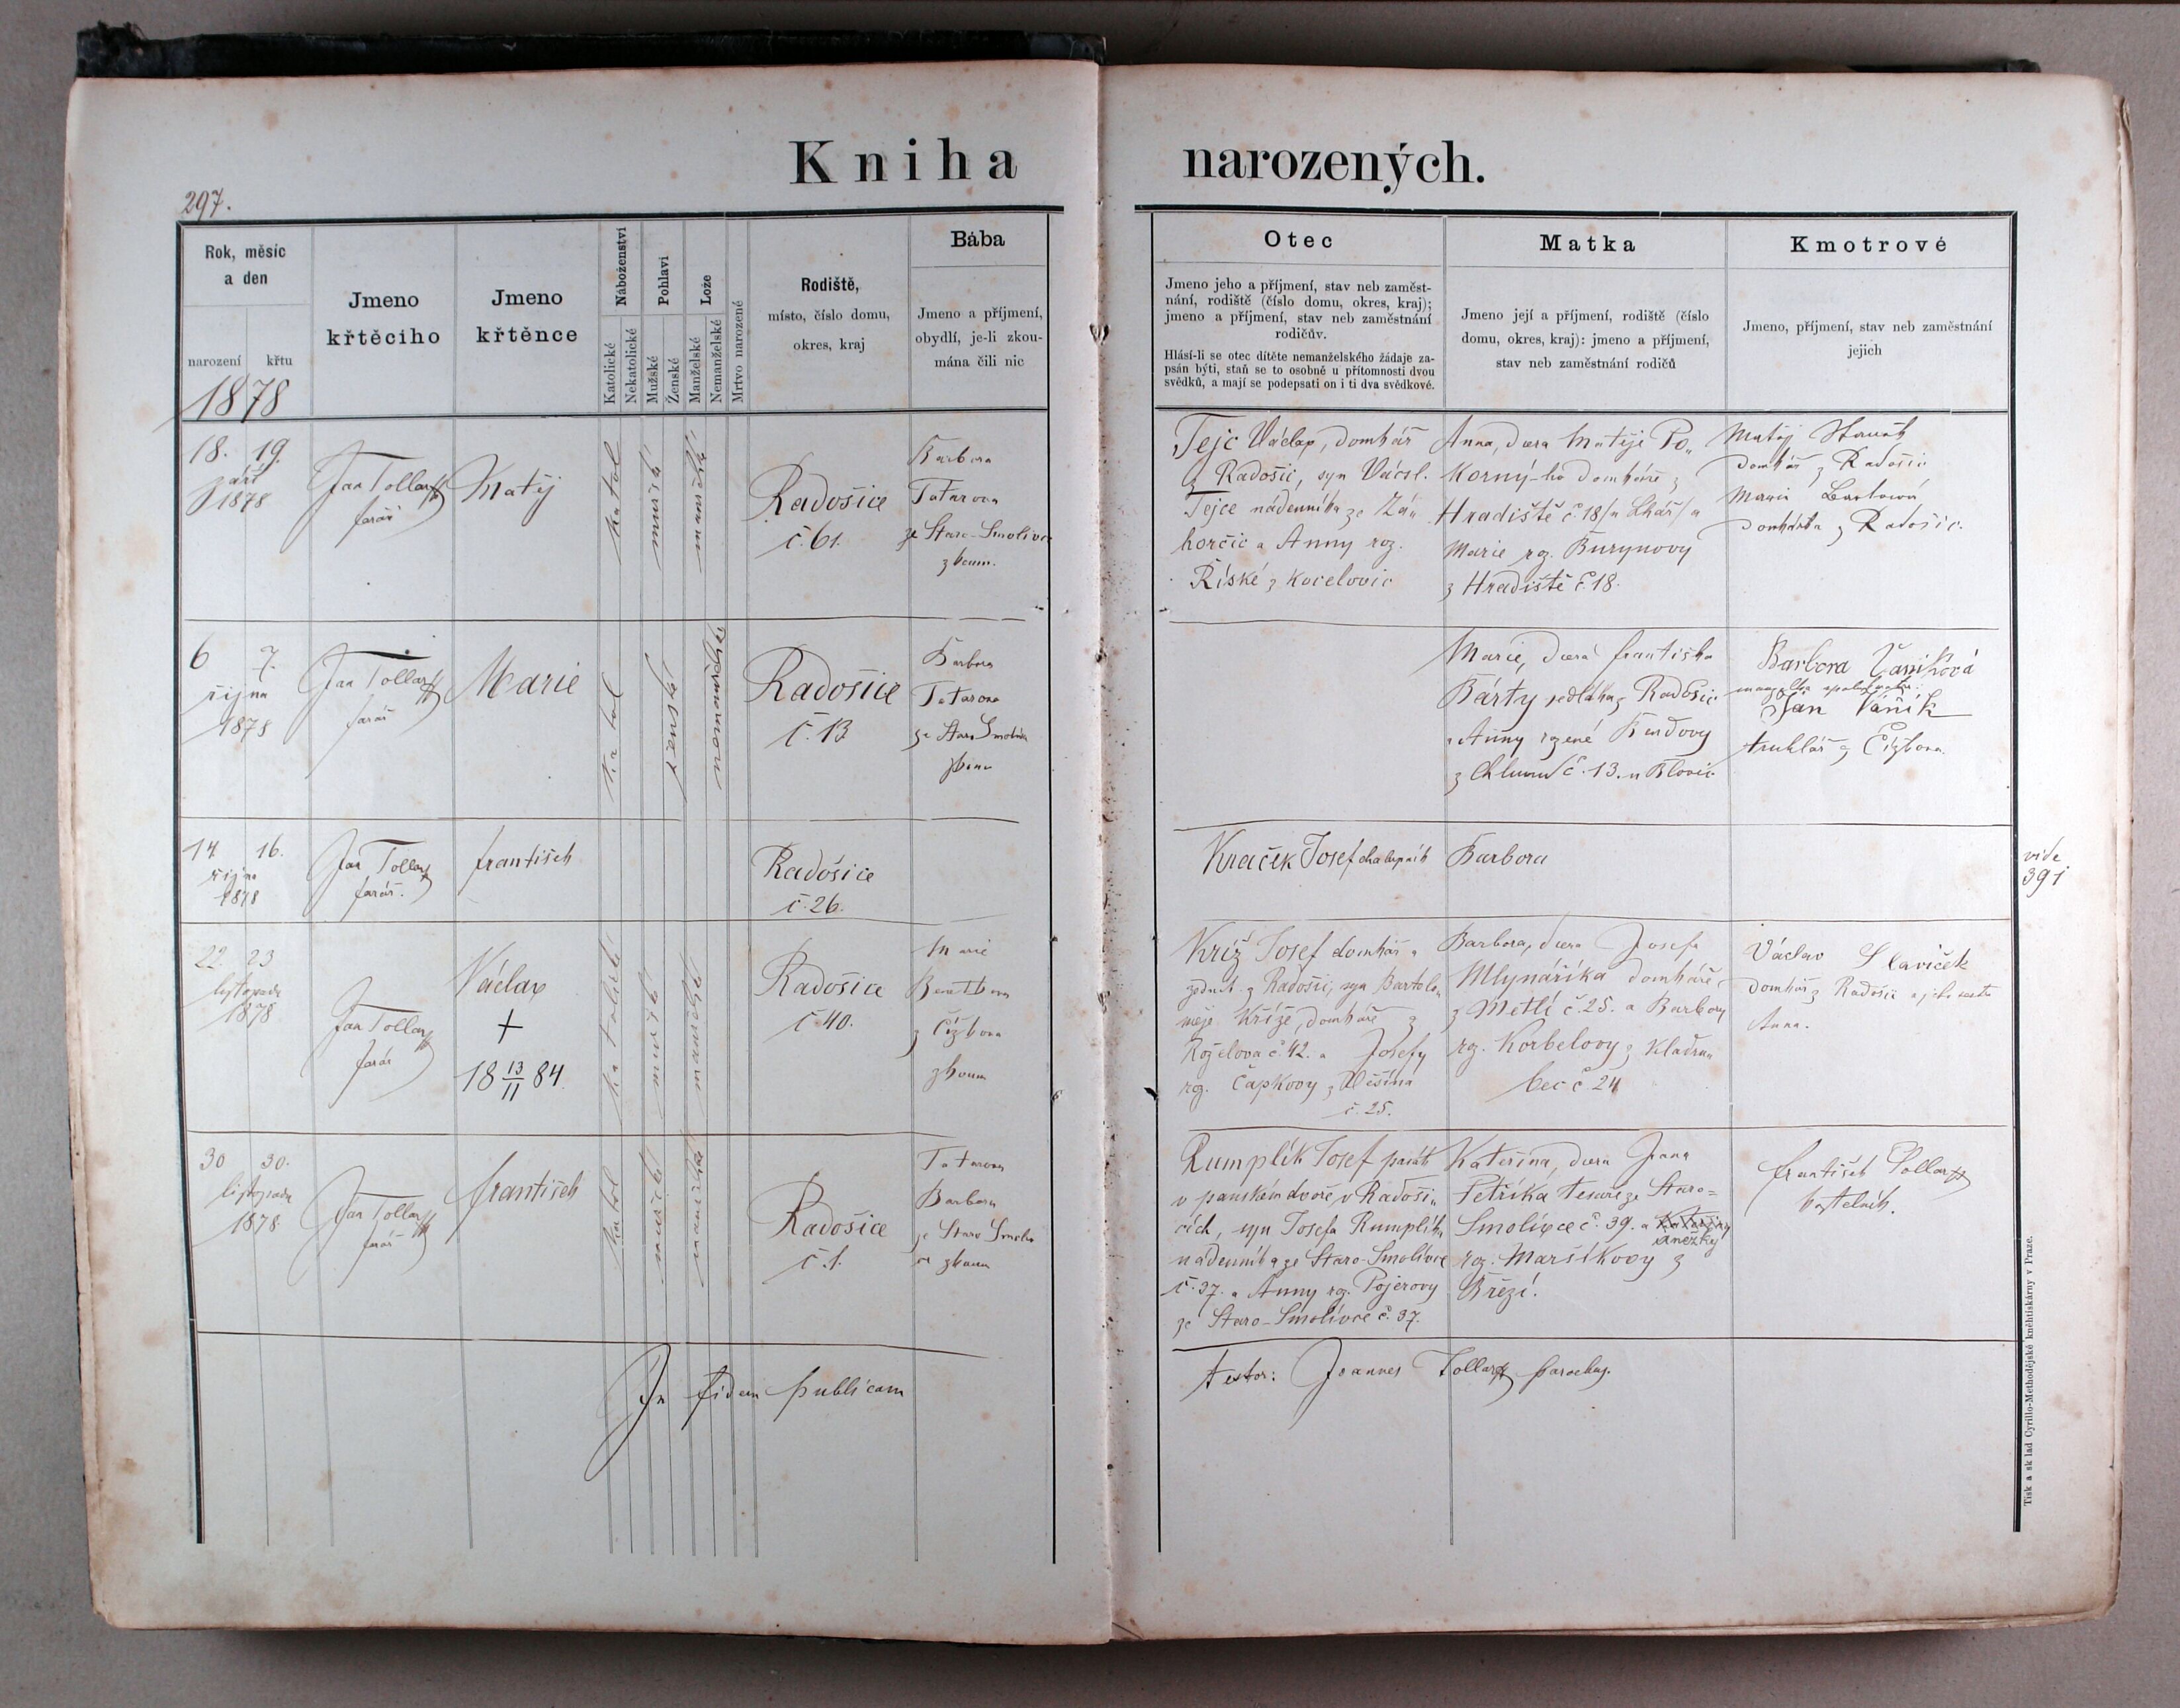 Kniha narozených.
297.
Rok, měsíc
a den
narození křtu
1878
Jmeno
křtěcího
Jmeno
křtěnce
Náboženství
Katolické
Nekatolické
Pohlaví
Mužské
Ženské
Lože
Manželské
Nemanželské
Mrtvo narozené
Rodiště,
místo, číslo domu,
okres, kraj
Bába
Jmeno a příjmení,
obydlí, je-li zkou-
mána čili nic
Otec
Jmeno jeho a příjmení, stav neb zaměst-
nání, rodiště (číslo domu, okres, kraj);
jmeno a příjmení, stav neb zaměstnání
rodičův.
Hlásí-li se otec dítěte nemanželského žádaje za-
psán býti, staň se to osobně u přítomnosti dvou
svědků, a mají se podepsati on i ti dva svědkové.
Matka
Jmeno její a příjmení, rodiště (číslo
domu, okres, kraj): jmeno a příjmení,
stav neb zaměstnání rodičů
Kmotrové
Jmeno, příjmení, stav neb zaměstnání
jejich
18. 19.
září
1878
Jan Tollar
farář
Matěj
katol
mužské
manželské
Radošice
č. 61.
Barbora
Tatarova
ze Staro-Smolivce
zkoum.
Tejc Václav, domkář
z Radošic, syn Václ.
Tejce nádenníka ze Zá„
horčic a Anny roz.
Říské z Kocelovic
Anna, dcera Matěje Po„
korný-ho domkáře z
Hradiště č. 18 a
Marie rz. Burynovy
z Hradiště č. 18.
Matěj
domkář z Radošic
Marie Bartová
domkářka z Radošic.
6 7.
října
1878
Jan Tollar
farář
Marie
katol
ženské
nemanželské
Radošice
č. 13
Barbora
Tatarova
ze Staro Smolivce
zkoum
Marie, dcera Františka
Bárty sedláka z Radošic
a Anny rozené
z Chlumu č. 13. u Blovic
Barbora Vaníková
manželka
Jan Vaník
truhlář z Čížkova
14 16.
října
1878
Jan Tollar
farář.
František
Radošice
č. 26.
Kraček Josef chalupník
Barbora
vide
391
22. 23
listopadu
1878
Jan Tollar
farář
Václav
+
18 13/11 84.
katolické
mužské
manželské
Radošice
č. 40.
Marie
z Čížkova
zkoum
Kříž Josef domkář a
zedník z Radošic, syn Bartolo„
měje Kříže, domkáře z
Roželova č. 42. a Josefy
rz. Čapkovy z Věšína
č. 25.
Barbora, dcera Josefa
Mlynáříka domkáře
z Metlí č. 25. a Barbory
rz. Korbelovy z Kladru„
bec č. 24
Václav Slavíček
domkář z Radošic a jeho sestra
Anna.
30 30.
listopadu
1878.
Jan Tollar
farář
František
katol
mužské
manželské
Radošice
č. 1.
Tatarova
Barbora
ze Staro Smoliv
ce zkoum
Rumplík Josef pasák
v panském dvoře v Radoši„
cích, syn Josefa Rumplíka
nádenníka ze Staro-Smolivce
č. 37. a Anny rz. Pojerovy
ze Staro-Smolivce č. 37.
Kateřina, dcera Jana
Petříka tesaře ze Staro=
Smolivce č. 39. a Kateřiny
Anežky
rz. Maršíkovy z
Březí.
František Tollar
kostelník.
In fidem publicam
testor: Joannes Tollar parochus.
Tisk a sklad Cyrillo-Methodějské kněhtiskárny v Praze.